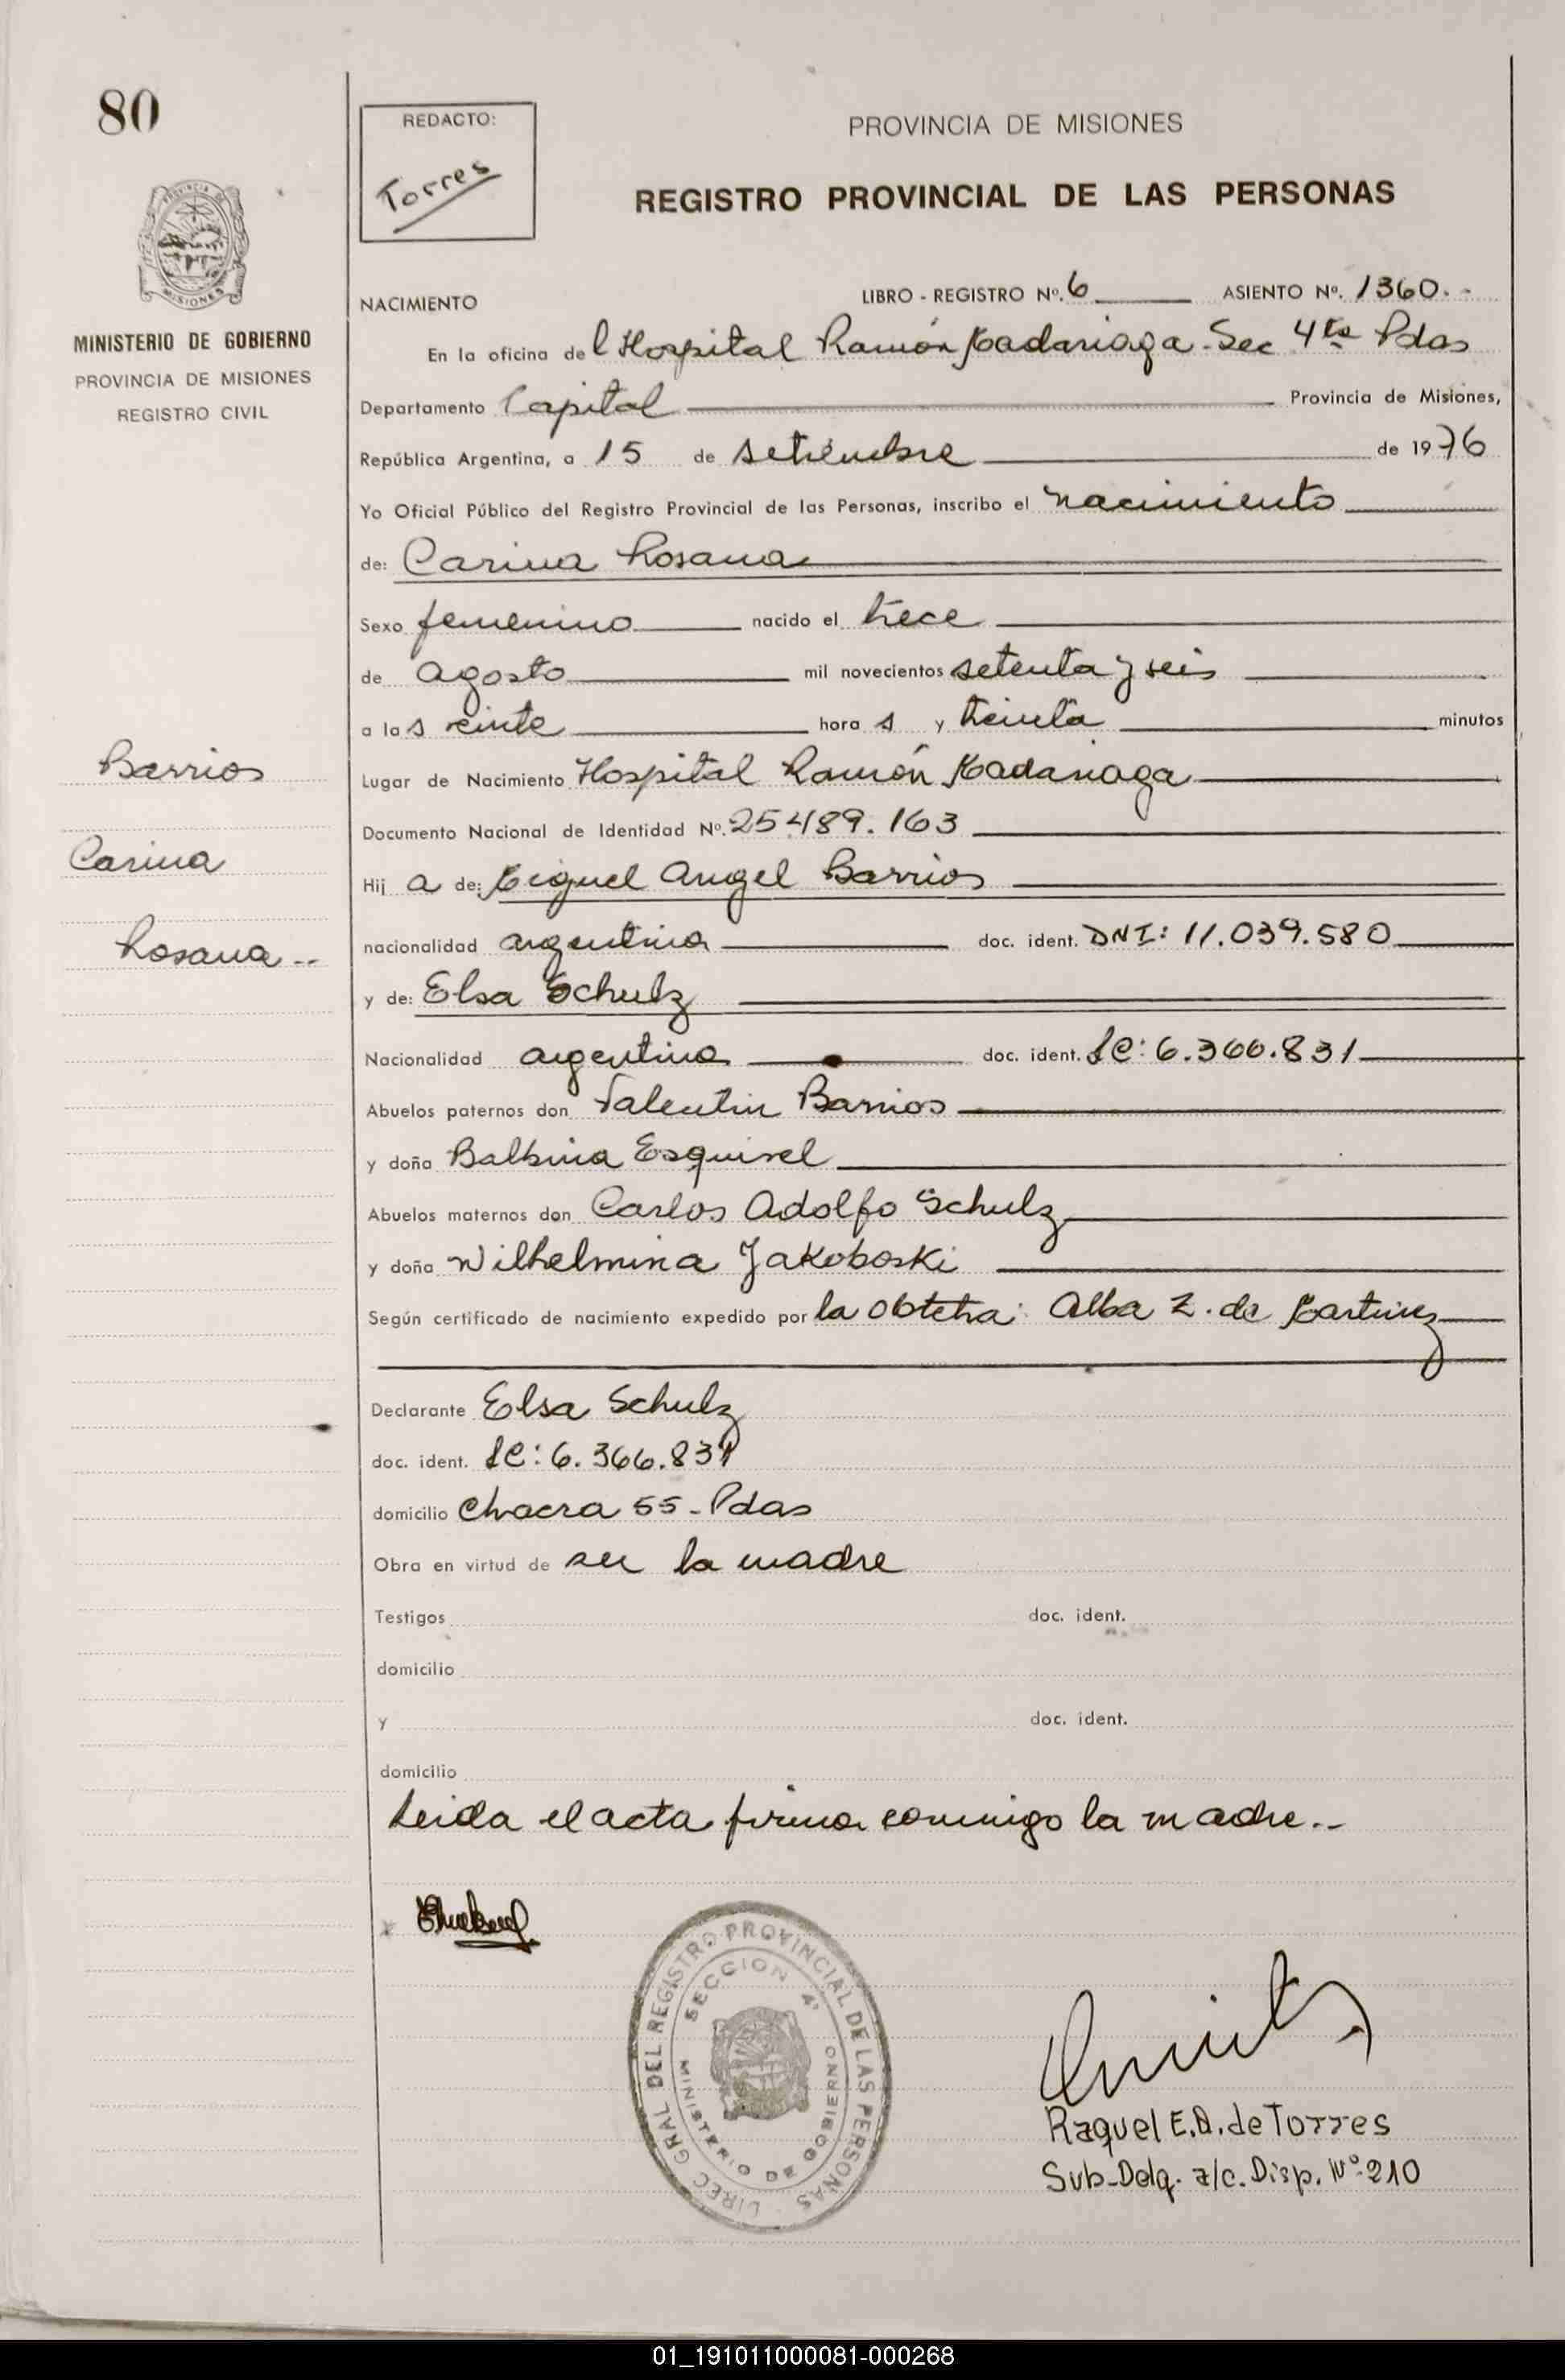 80
REDACTO:
Torres
PROVINCIA DE MISIONES
REGISTRO PROVINCIAL DE LAS PERSONAS
PROVINCIA DE
MISIONES
MINISTERIO DE GOBIERNO
PROVINCIA DE MISIONES
REGISTRO CIVIL
NACIMIENTO
LIBRO - REGISTRO Nº. 6 ASIENTO Nº. 1360.-
En la oficina del Hospital Ramón Madariaga - Sec 4ta Pdas
Departamento Capital Provincia de Misiones,
República Argentina, a 15 de setiembre de 1976
Yo Oficial Público del Registro Provincial de las Personas, inscribo el nacimiento
de: Carina Rosana
Sexo femenino nacido el trece
de agosto mil novecientos setenta y seis
a las veinte horas y treinta minutos
Lugar de Nacimiento Hospital Ramón Madariaga
Documento Nacional de Identidad Nº. 25.489.163
Hija de: Miguel Angel Barrios
nacionalidad argentina doc. ident. DNI: 11.039.580
y de: Elsa Schulz
Nacionalidad argentina doc. ident. LC: 6.366.831
Abuelos paternos don Valentin Barrios
y doña Balbina Esquivel
Abuelos maternos don Carlos Adolfo Schulz
y doña Wilhelmina Jakoboski
Según certificado de nacimiento expedido por la obtetra: Alba Z. de Martinez
Barrios
Carina
Rosana--
Declarante Elsa Schulz
doc. ident. LC: 6.366.831
domicilio Chacra 55 - Pdas
Obra en virtud de ser la madre
Testigos doc. ident.
domicilio
y doc. ident.
domicilio
Leida el acta firma conmigo la madre.-
DIREC GRAL DEL REGISTRO PROVINCIAL DE LAS PERSONAS
SECCION 4ª
MINISTERIO DE GOBIERNO
Raquel E.A. de Torres
Sub-Delg. a/c. Disp. Nº 210
01_191011000081-000268